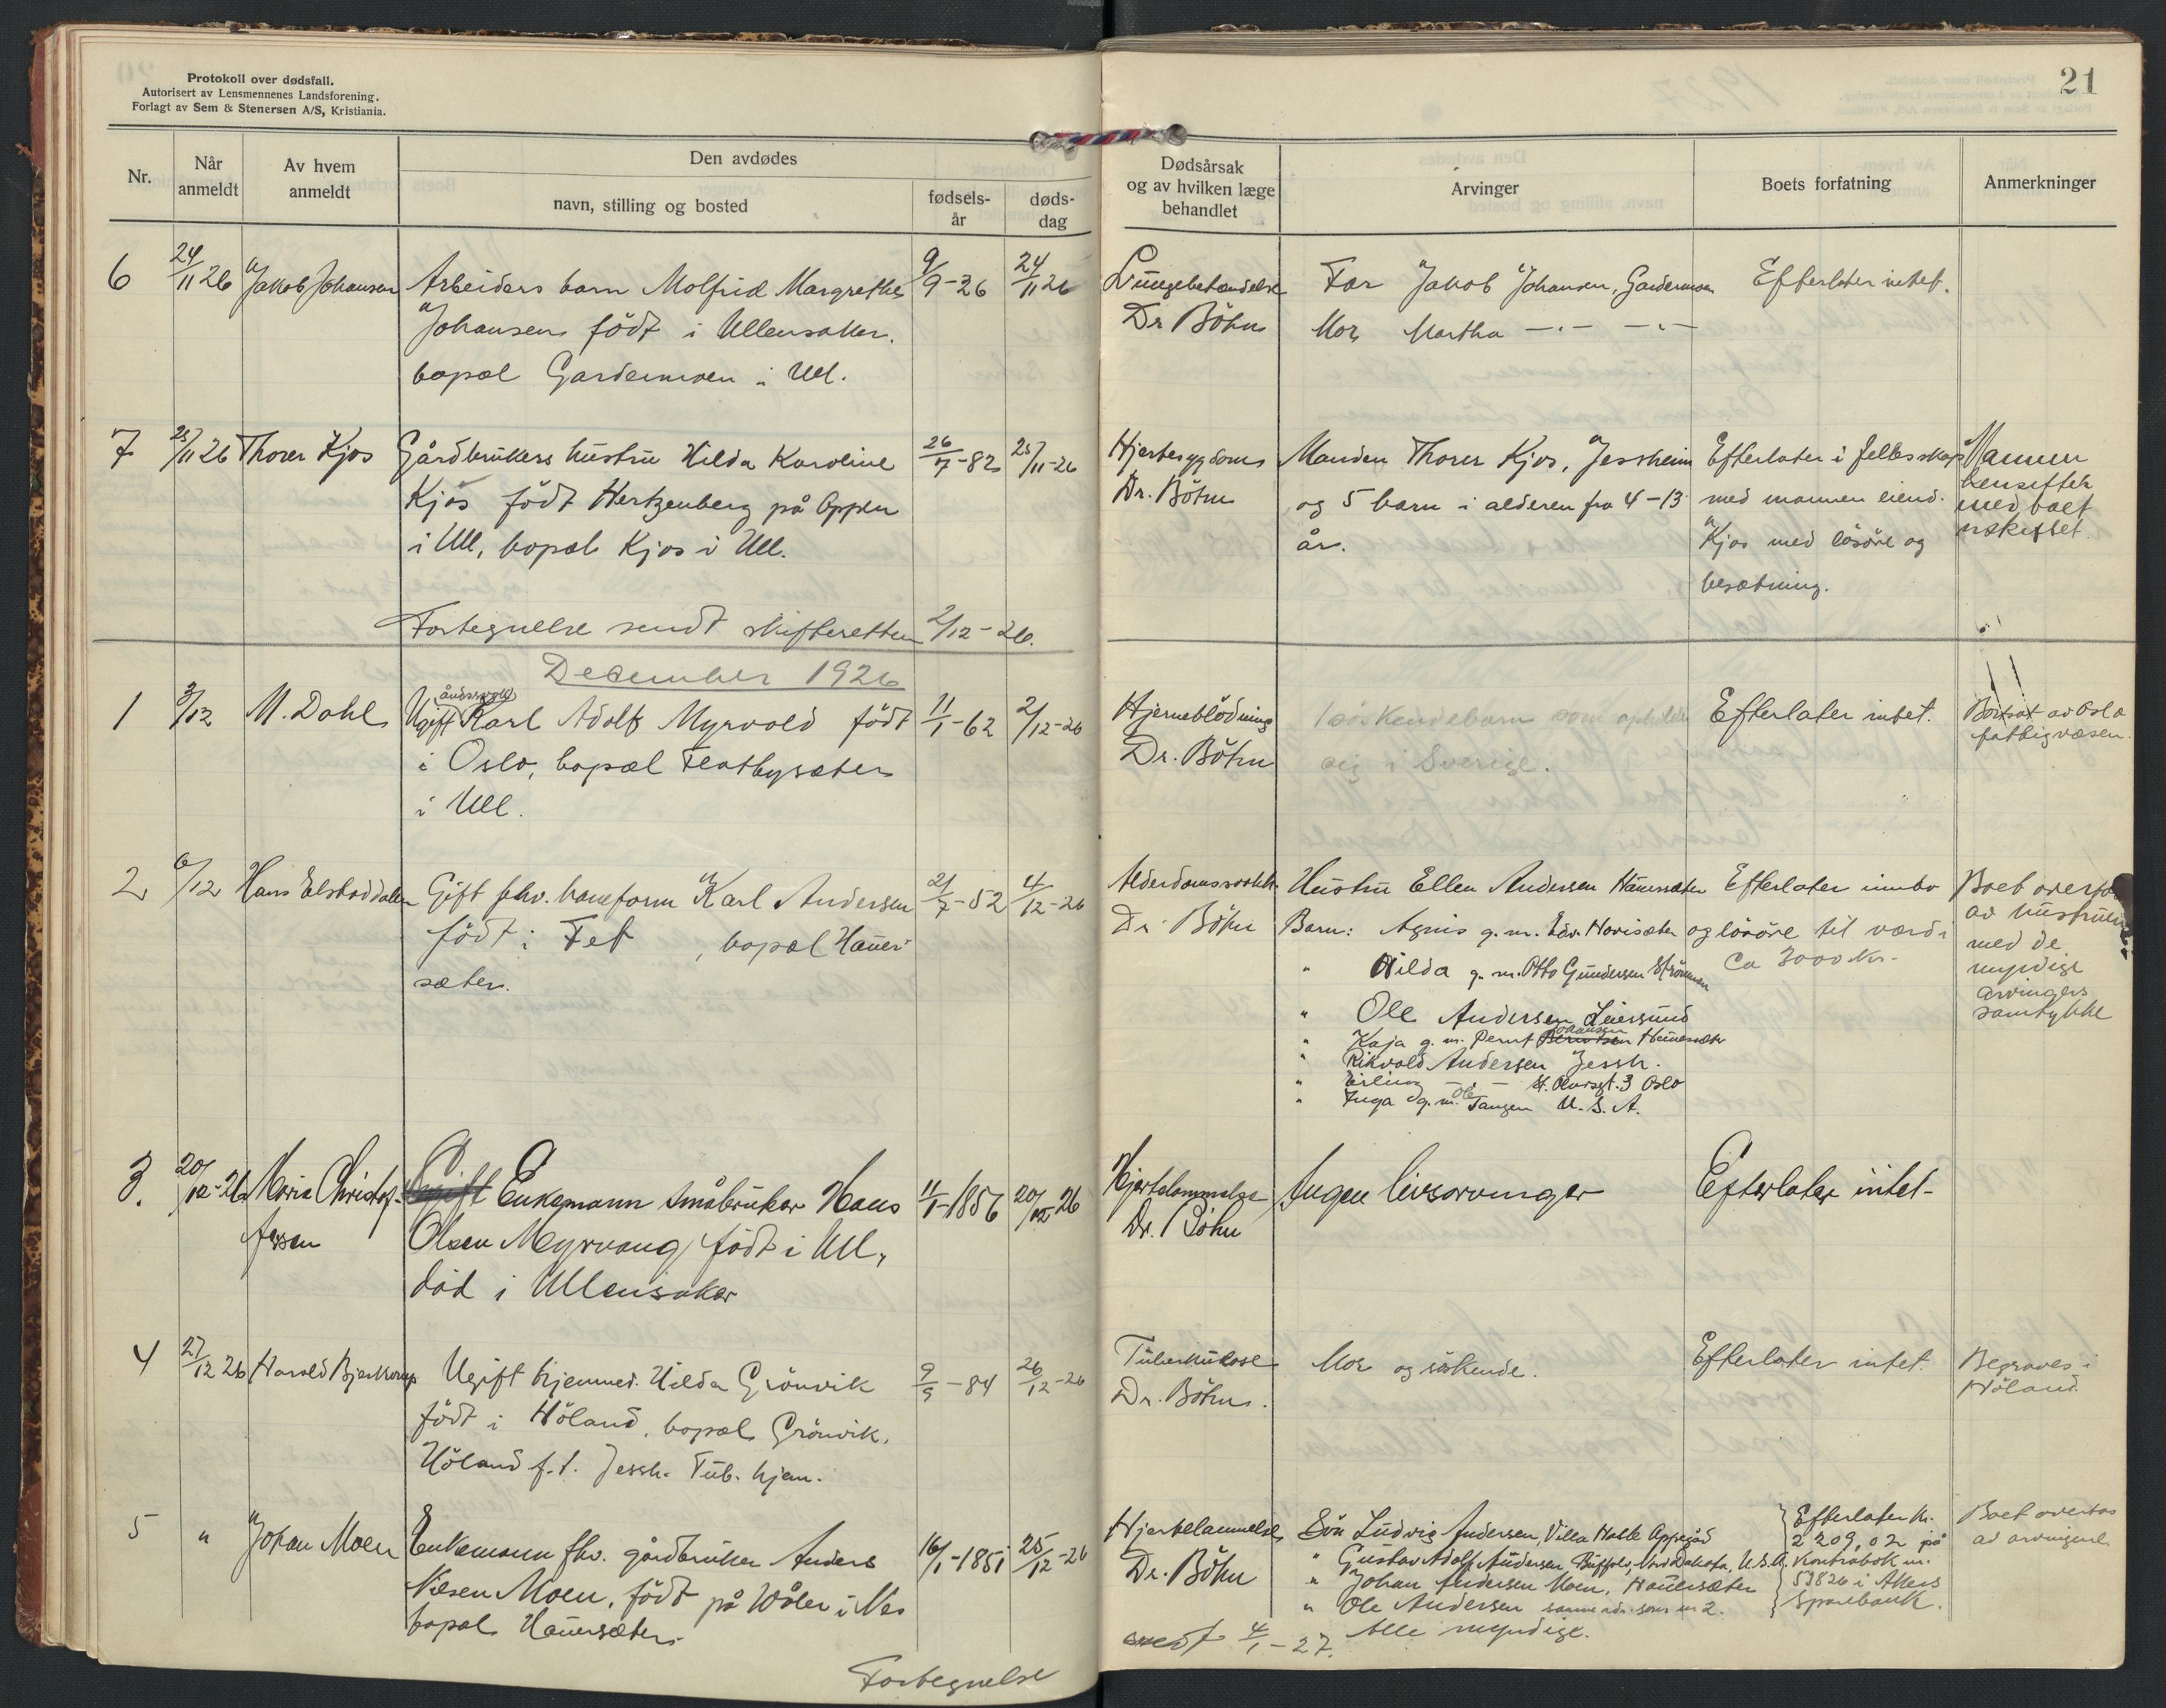 Protokoll over dødsfall.
Autorisert av Lensmennenes Landsforening.
Forlagt av Sem & Stenersen A/S, Kristiania.
21
Nr.
Når anmeldt
Av hvem anmeldt
Den avdødes
navn, stilling og bosted
fødsels-år
døds-dag
Dødsårsak og av hvilken læge behandlet
Arvinger
Boets forfatning
Anmerkninger
6 24/11 26 Jakob Johansen Arbeiders barn Molfrid Margrethe 9/9-26 24/11 26 Lungebetændelse Far Jakob Johansen, Gardermoen Efterlater intet.
Johansen født i Ullensaker. Dr Böhn Mor Martha —"— —"—
bopæl Gardermoen i Ull.
7 25/11 26 Thorer Kjos Gårdbrukers hustru Hilda Karoline 26/7-82 25/11-26 Hjertesygdoms Manden Thorer Kjos, Jessheim Efterlater i fellesskap Mannen
Kjos født Hertzenberg på Oppen Dr. Böhn og 5 barn i alderen fra 4-13 med mannen eiend. hensitter
i Ull, bopæl Kjos i Ull. år. Kjos med løsöre og med boet
besætning. uskiftet.
Fortegnelse sendt skifteretten 2/12-26.
December 1926
1 3/12 M. Dahl Ugift åndssvak Karl Adolf Myrvold født 11/1-62 2/12-26 Hjerneblödning 1 söskendebarn som opholder Efterlater intet. av Oslo
i Oslo, bopæl Flatbysæter Dr. Böhn sig i Sverige. fattigvæsen.
i Ull.
2 6/12 Hans Elstaddalen Gift fhv. Karl Andersen 21/7-52 4/12-26 Alderdomssvakh. Hustru Ellen Andersen Hauersæter Efterlater innbo Boet overta
født i Fet, bopæl Hauer- Dr Böhn Barn: Agnis g.m. Edv. Hovisæter og løsöre til værdi av hustruen
sæter. " Hilda g.m. Otto Gundersen Strömmen Ca 3000 Kr. med de
" Ole Andersen Leiersund myndige
" Kaja g.m. Bernt Johansen Hauersæter arvingers
" Rikvald Andersen Jessh. samtykke
" Erling —"— St. Olavsgt. 3 Oslo
" Inga g.m. Ole Tangen U.S.A.
3. 20/12-26 Maria Christof- Enkemann Småbruker Hans 11/1-1856 20/12 26 Hjertelammelse Ingen livsarvinger Efterlater intet-
fersen Olsen Myrvang, født i Ull, Dr. Böhn
död i Ullensaker
4 27/12 26 Harald Bjerknes Ugift hjemmev. Hilda Grönvik 9/9-84 26/12-26 Tuberkulose Mor og söskende. Efterlater intet. Begraves i
født i Höland, bopæl Grönvik, Dr. Böhn. Höland.
Höland f.t. Jessh. Tub. hjem.
5 " Johan Moen Enkemann fhv. gårdbruker Anders 16/1-1851 25/12-26 Hjertelammelse Sön Ludvig Andersen, Villa Halle Oppegård Efterlater kr. Boet overtas
Nilsen Moen, født på Wåler i Nes Dr. Böhn " Gustav Adolf Andersen, Buffalo, Nord Dakota, U.S.A. 2209,02 på av arvingene.
bopæl Hauersæter. " Johan Andersen Moen, Hauersæter Kontrabok nr.
" Ole Andersen samme adr. som nr 2. 53826 i Akers
Alle myndige. Sparebank.
Fortegnelse sendt 4/1-27.